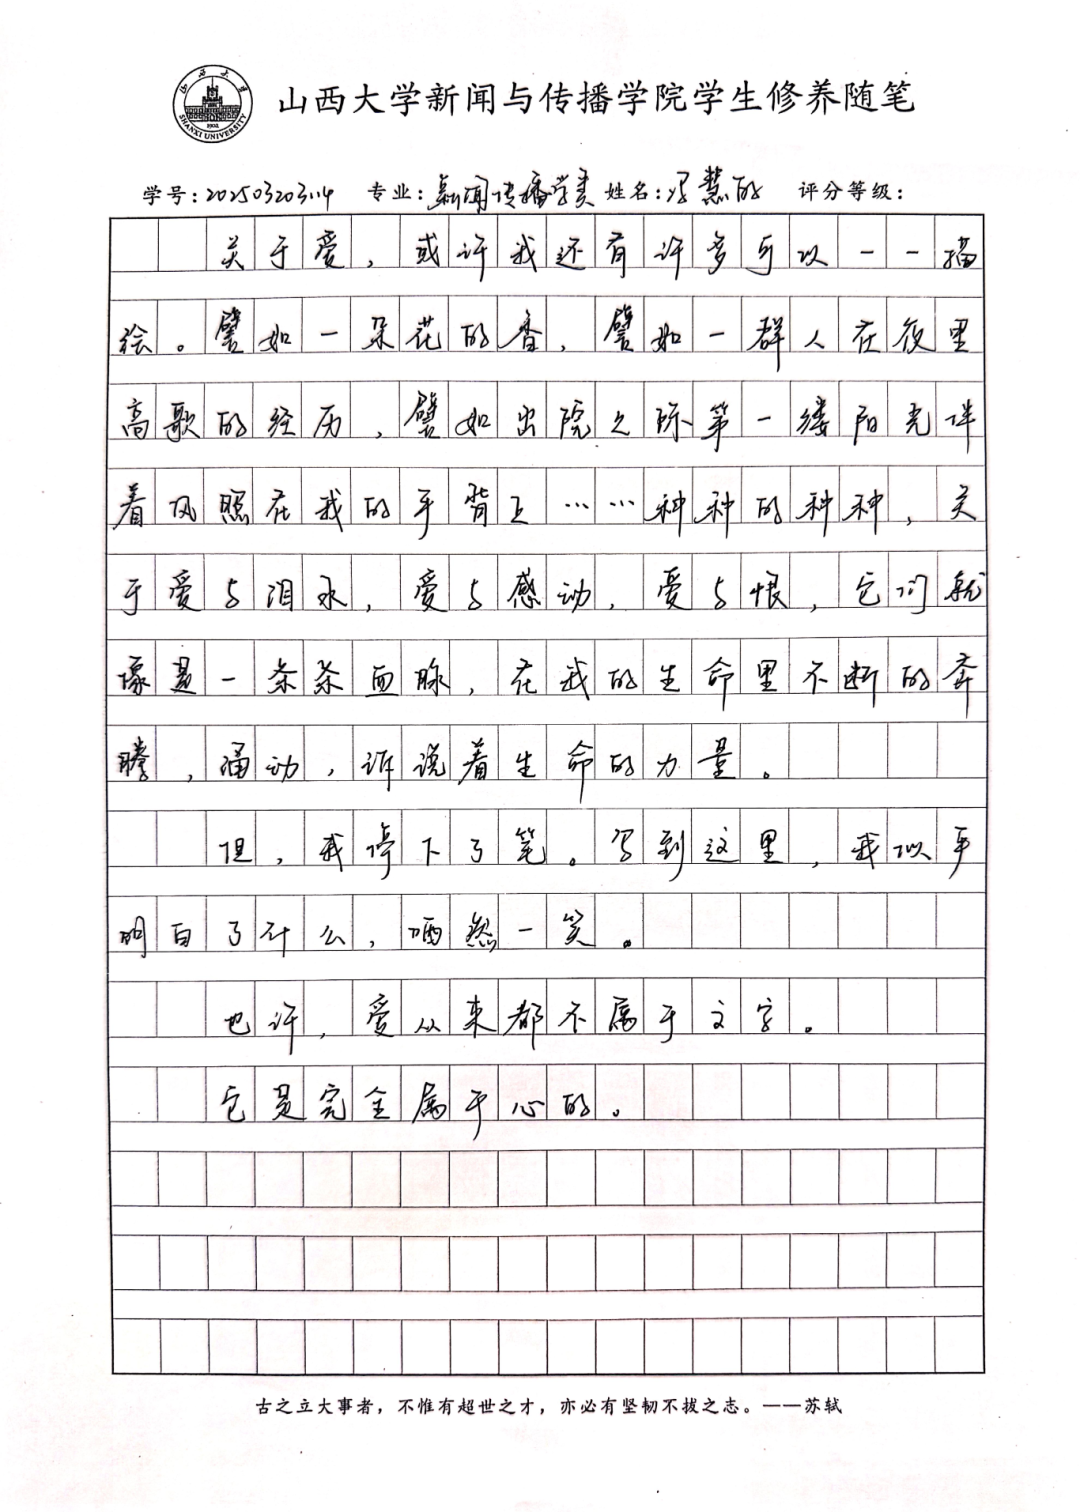 山西大学
SHANXI UNIVERSITY
1902
山西大学新闻与传播学院学生修养随笔
学号:202503203114 专业:新闻传播学类 姓名:冯慧明 评分等级:
关于爱，或许我还有许多可以一一描
绘。譬如一朵花的香，譬如一群人在夜里
高歌的经历，譬如出院之际第一缕阳光伴
着风照在我的手背上……种种的种种，关
于爱与泪水，爱与感动，爱与恨，它们就
像是一条条血脉，在我的生命里不断的奔
腾，涌动，诉说着生命的力量。
但，我停下了笔。写到这里，我似乎
明白了什么，哂然一笑。
也许，爱从来都不属于文字。
它是完全属于心的。
古之立大事者，不惟有超世之才，亦必有坚韧不拔之志。——苏轼